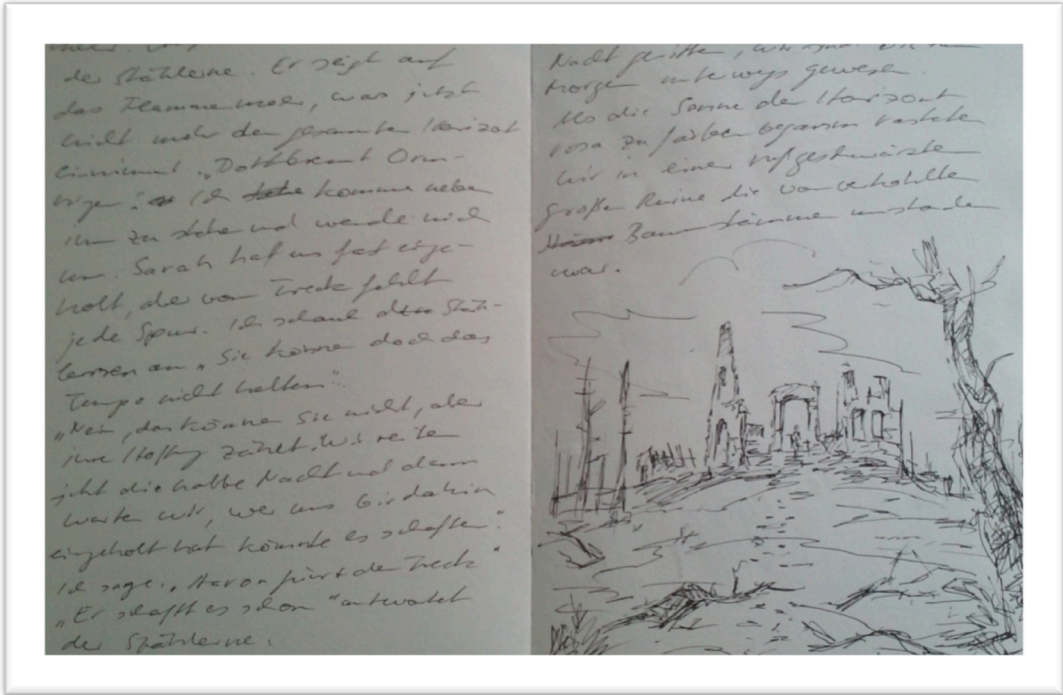 der Stählerne. Er zeigt auf
das Flammenmeer, was jetzt
nicht mehr den gesamten Horizont
einnimmt. „Dort brennt
Ich komme neben
ihm zu stehen und wende mich
um. Sarah hat uns fast einge-
holt, aber vom Treck fehlt
jede Spur. Ich schaue den Stäh-
lernen an „Sie können doch das
Tempo nicht halten"
„Nein, das können sie nicht, aber
ihre Hoffnung zählt. Wir reiten
jetzt die halbe Nacht und dann
warten wir, wer uns bis dahin
eingeholt hat könnte es schaffen."
Ich sage. „Aaron führt den Treck"
„Er schafft es schon" antwortet
der Stählerne.
Nacht geritten, wir
Morgen unterwegs gewesen.
Als die Sonne den Horizont
rosa zu färben begann rasteten
wir in einer rußgeschwärzten
großen Ruine die von verkohlten
Baumstämmen umstanden
war.